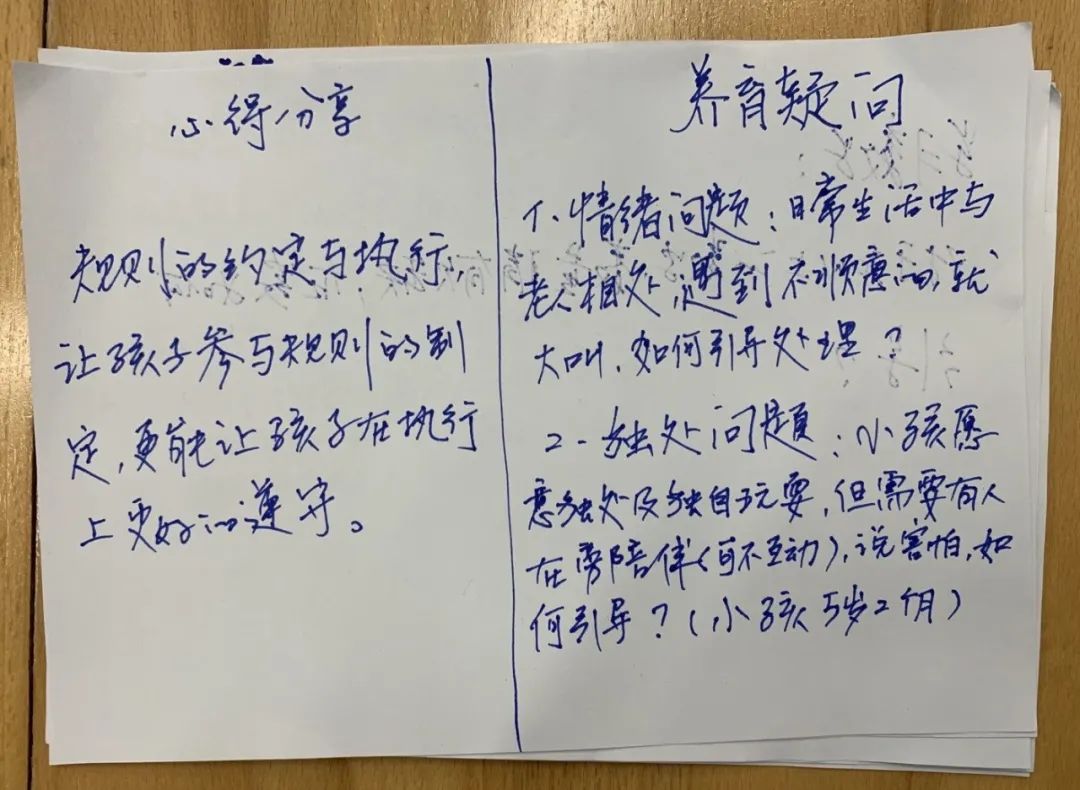 心得分享
规则的约定与执行,
让孩子参与规则的制
定,更能让孩子在执行
上更好的遵守。
养育疑问
1、情绪问题:日常生活中与
老人相处,遇到不顺意的,就
大叫,如何引导处理?
2、独处问题:小孩愿
意独处及独自玩耍,但需要有人
在旁陪伴(可不互动),说害怕,如
何引导?(小孩5岁2个月)